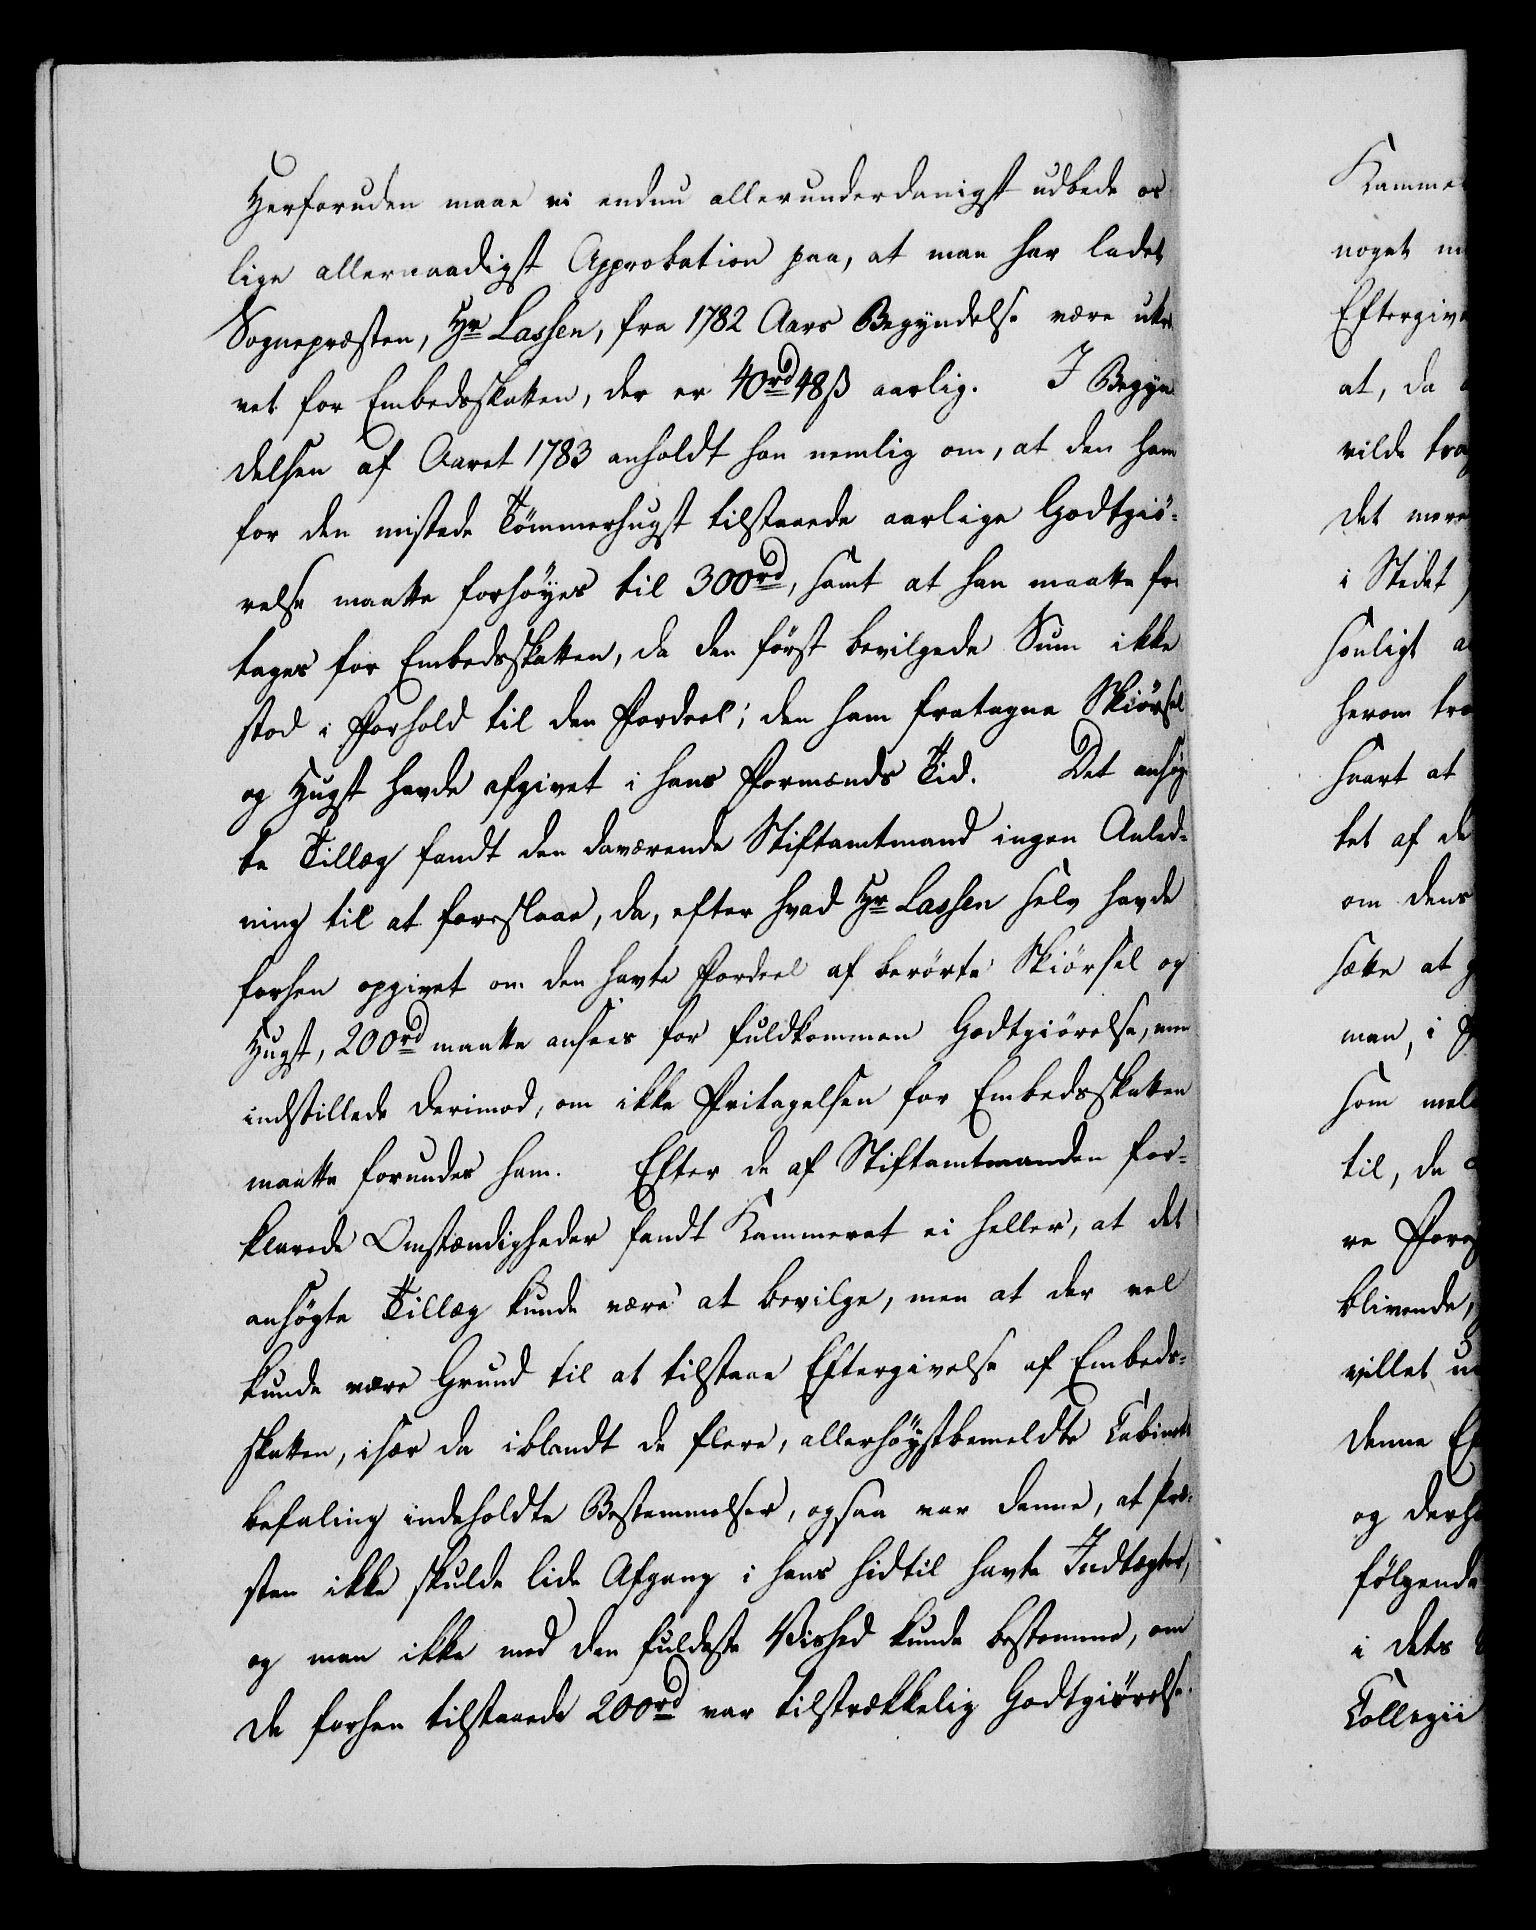 Herforuden maae vi endnu allerunderdanigst udbede os
lige allernaadigst Approbation paa, at man har ladet
Sognepræsten, Hr Lassen, fra 1782 Aars Begyndelse være
vet for Embedsskatten, der er 40rd 48ß aarlig. I Begyn
delsen af Aaret 1783 anholdt han nemlig om, at den ham
for den mistede Tömmerhugst tilstaaede aarlige Godtgiö-
relse maatte forhöyes til 300rd, samt at han maatte fri
tages for Embedsskatten, da den först bevilgede Sum ikke
stod i Forhold til den Fordeel, den ham fratagne Skiörsel
og Hugst havde afgivet i hans Formands Tid. Det ansög
te Tillæg fandt den daværende Stiftamtmand ingen Anled-
ning til at foreslaae, da, efter hvad Hr Lassen selv havde
forhen opgivet om den havte Fordeel af berörte Skiörsel og
Hugst, 200rd maatte ansees for fuldkommen Godtgiörelse, men
indstillede derimod, om ikke Fritagelsen for Embedsskatten
maatte forundes ham. Efter de af Stiftamtmanden for-
klarede Omstændigheder fandt Kammeret ei heller, at det
ansögte Tillæg kunde være at bevilge, men at der vel
kunde være Grund til at tilstaae Eftergivelse af Embeds-
skatten, især da iblandt de flere, allerhöystbemeldte Cabinets
befaling indeholdte Bestemmelser, ogsaa var denne, at Præ-
sten ikke skulde lide Afgang i hans hidtil havte Indtægter,
og man ikke med den fuldeste Vished kunde bestemme, om
de forhen tilstaaede 200rd var tilstrækkelig Godtgiörelse.
Kammer
noget
Eftergive
at, da
vilde
det mere
i Stedet
sönligt
herom
svart at
tet af de
om dens
sætte at
man, i
som
til, da
re
blivende,
villet
denne
og
fölgende
i dets
Collegii